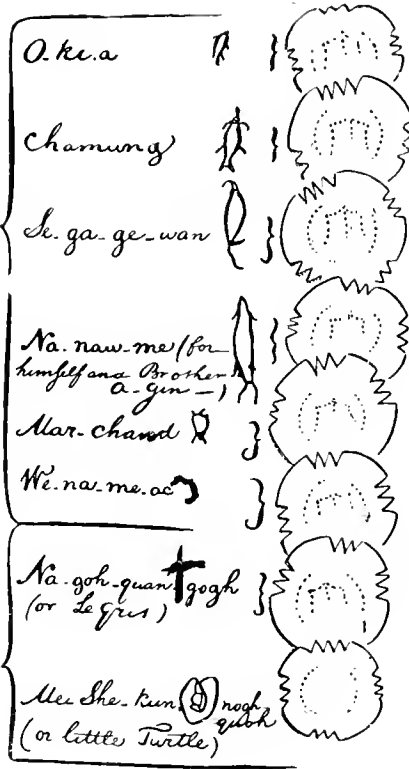 O-ki-a
Chamung
Se-ga-ge-wan
Na-naw-me (for
himself and Brother
A-gin-)
Mar-chand
We-na-me-ac
Na-goh-quan gogh
(or Le Gris)
Mee She-kun nogh
quoh
(or little Turtle)